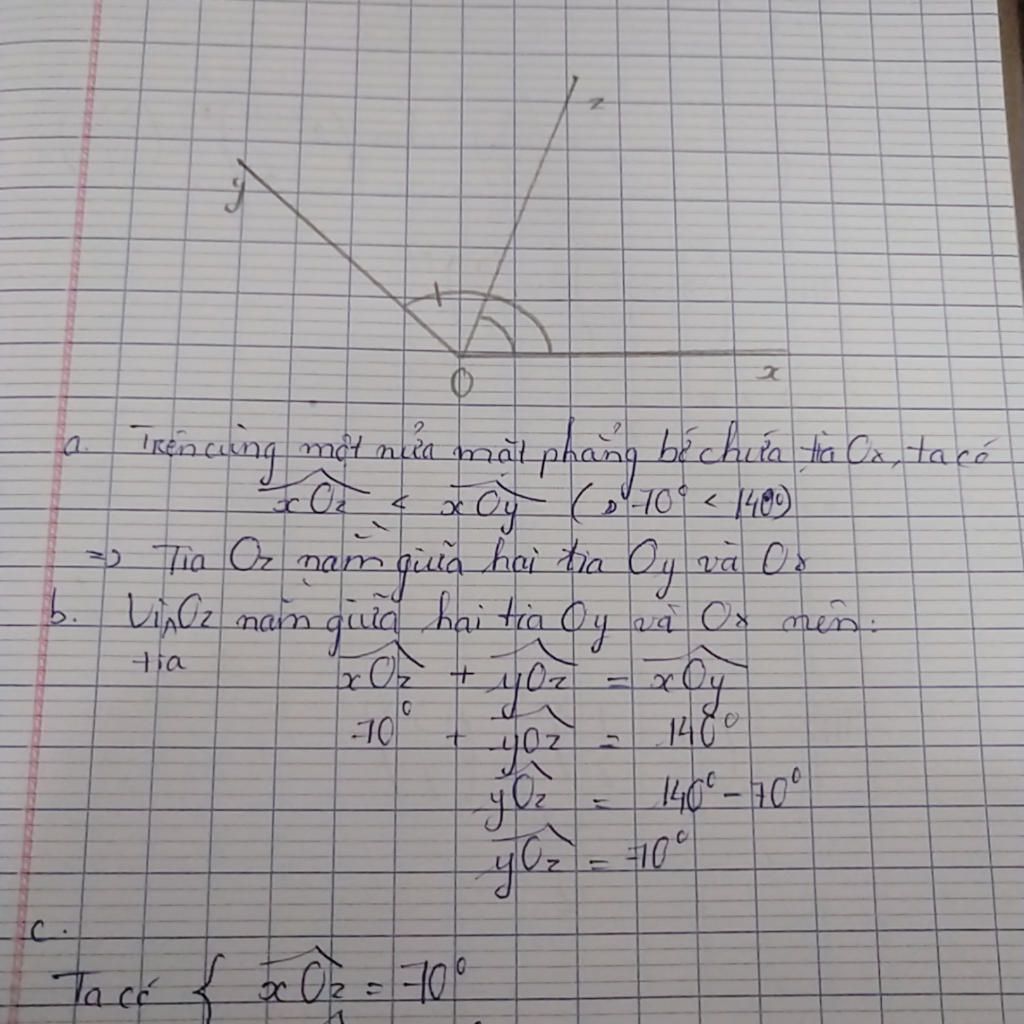 z
y
O
x
a. Trên cùng một nửa mặt phẳng bờ chứa tia Ox, ta có
xOz < xOy ( 70° < 140°)
=> Tia Oz nằm giữa hai tia Oy và Ox
b. Vì Oz nằm giữa hai tia Oy và Ox nên:
tia
xOz + yOz = xOy
70° + yOz = 140°
yOz = 140° - 70°
yOz = 70°
c.
Ta có { xOz = 70°